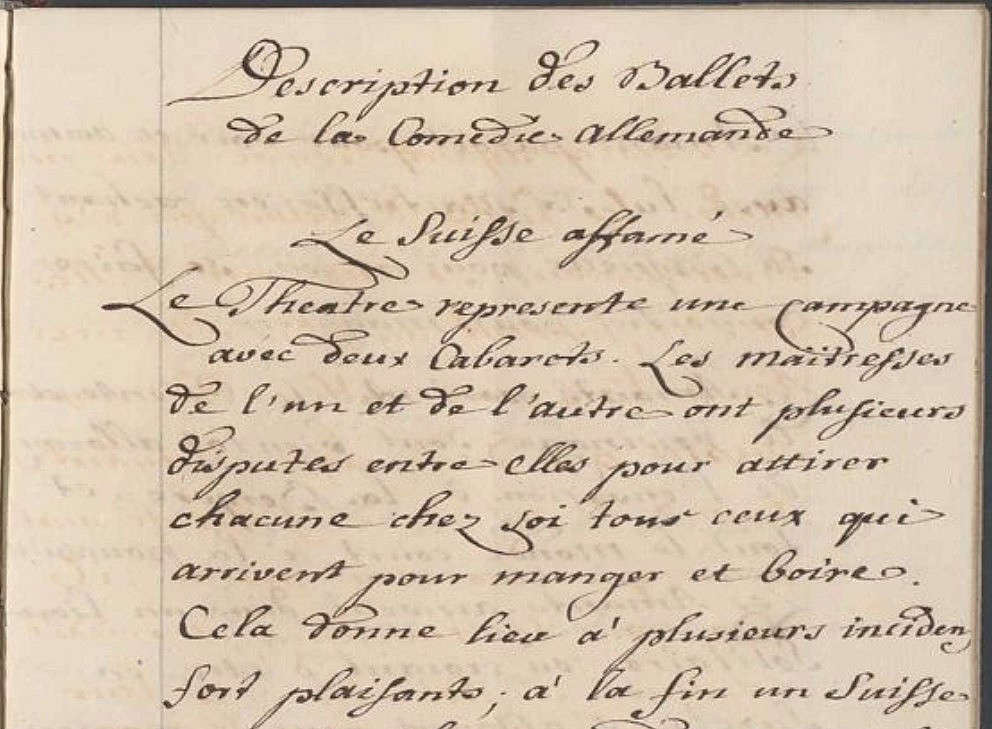 Description des Ballets
de la Comedie allemande
Le Suisse affamé
Le Theatre represente une Campagne
avec deux Cabarets. Les maitresses
de l'un et de l'autre ont plusieurs
disputes entre elles pour attirer
chacune chez soi tous ceux qui
arrivent pour manger et boire.
Cela donne lieu á plusieurs inciden
fort plaisants; á la fin un Suisse